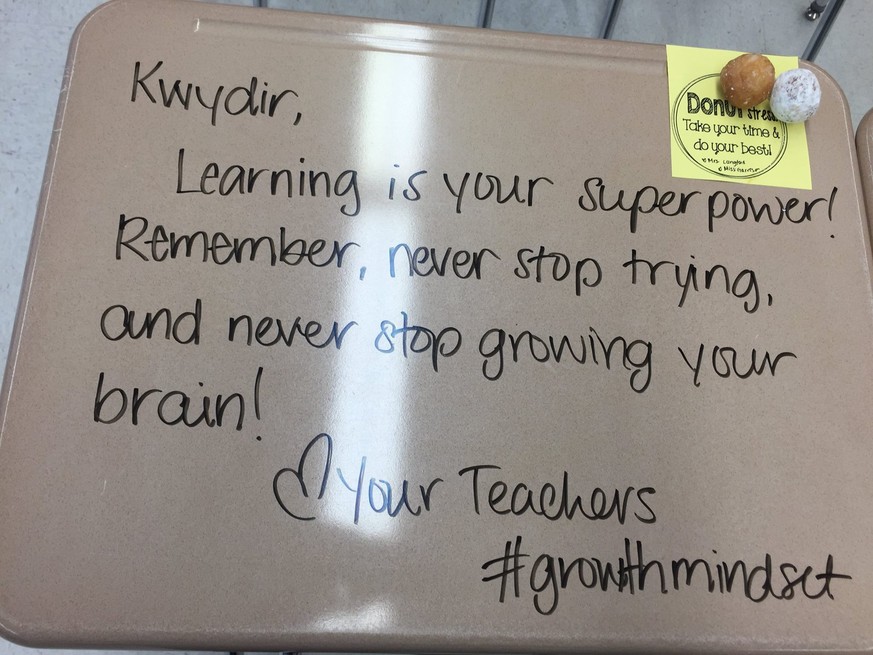 Kwydir,
Learning is your superpower!
Remember, never stop trying,
and never stop growing your
brain!
♡ Your Teachers
#growthmindset
Donut stress.
Take your time &
do your best!
Mrs. Langlot